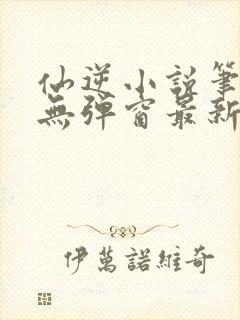 仙逆小說筆
無彈窗最新
伊萬諾維奇